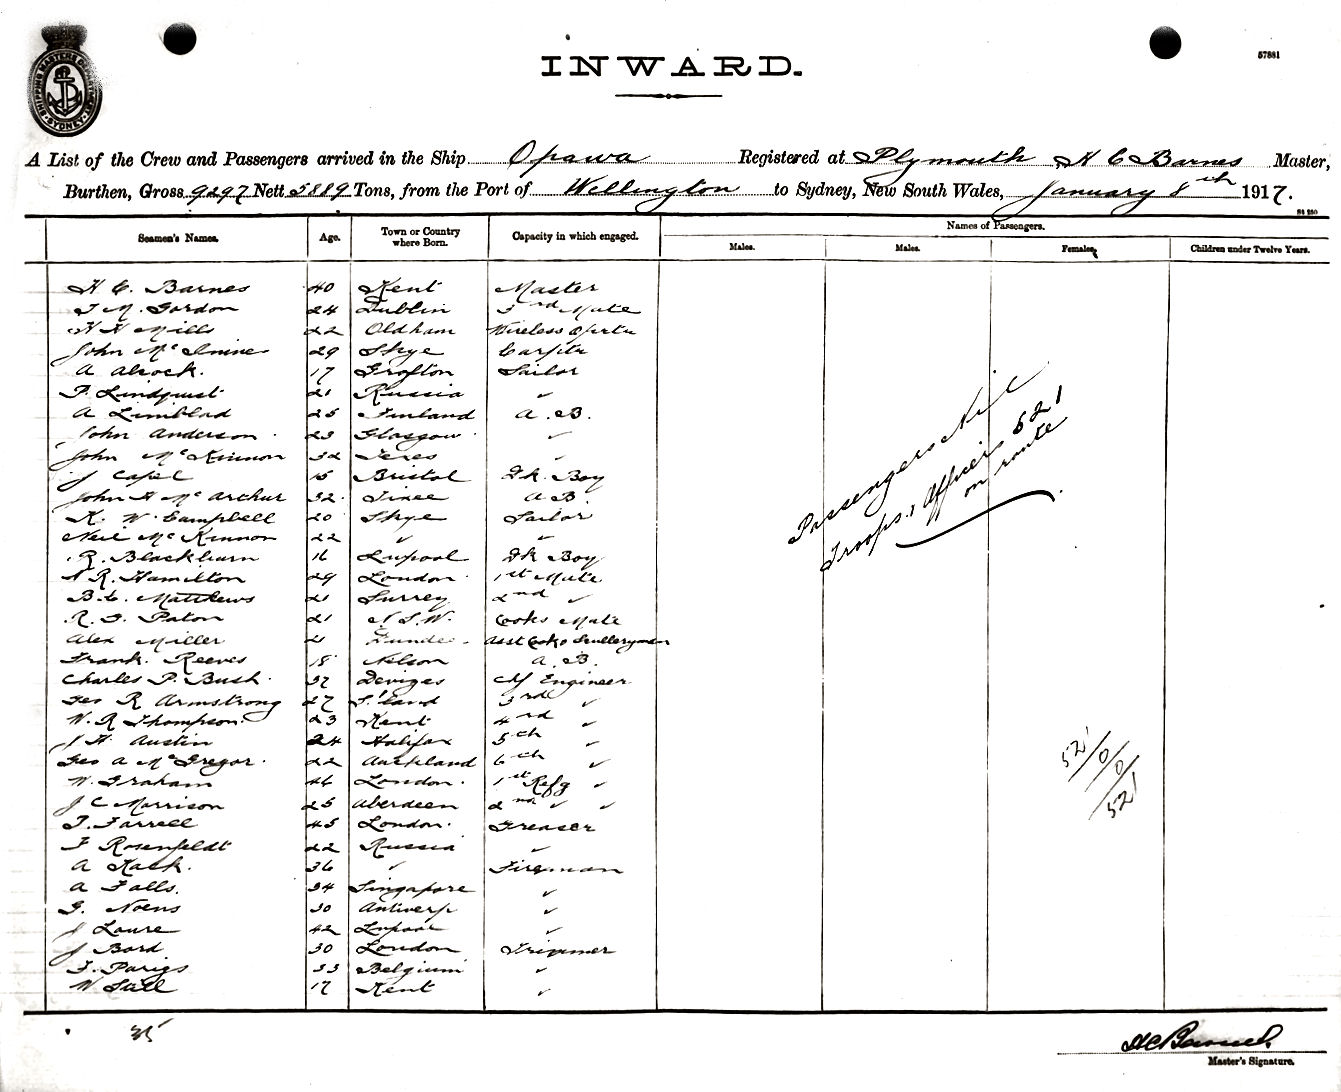 SHIPPING MASTERS DEPARTMENT SYDNEY
57881
INWARD.
A List of the Crew and Passengers arrived in the Ship Opawa Registered at Plymouth H C Barnes Master,
Burthen, Gross 9297 Nett 5889 Tons, from the Port of Wellington to Sydney, New South Wales, January 8th 1917.
Seamen's Names. Age. Town or Country where Born. Capacity in which engaged. Names of Passengers.
Males. Males. Females. Children under Twelve Years.
H C. Barnes 40 Kent Master
T M. Gordon 24 Dublin 3rd Mate
H H Mills 22 Oldham Wireless Opertr
John Mc Innines 29 Skye Carptr
A Alcock. 17 Grafton Sailor
P. Lindquist 21 Russia ✓
A Limblad 25 Finland A.B.
John Anderson 23 Glasgow ✓
John McKinnon 32 Teres ✓
J Capel 15 Bristol Dk Boy
John H McArthur 32 Tiree A B
K. W Campbell 20 Skye Sailor
Neil McKinnon 22 ✓ ✓
R. Blackburn 16 Lupool Dk Boy
N R. Hamilton 29 London 1st Mate
B.C. Matthews 21 Surrey 2nd ✓
R. J. Paton 21 N.S.W. Cooks Mate
Alex Miller 21 Dundee Asst Cook & Sculleryman
Frank. Reeves 18 Nelson A.B.
Charles P. Bush 37 Devizes Chf Engineer
Geo R Armstrong 27 S'land 3rd ✓
W. R Thompson 23 Kent 4th ✓
J H Austin 24 Halifax 5th ✓
Geo A McGregor 22 Auckland 6th ✓
W. Graham 46 London 1st Refg ✓
J C Morrison 25 Aberdeen 2nd ✓ ✓
T. Farrell 45 London Greaser
F Rosenfeldt 22 Russia ✓
A Kask. 36 ✓ Fireman
A Falls. 34 Singapore ✓
G. Noens 30 Antwerp ✓
J Laure 42 Lupool ✓
J Bord 30 London Trimmer
F. Parigs 33 Belgium ✓
W 17 Kent ✓
Passengers Nil
Troops & Officers 521
on route
521/0/0/521
35
H C Barnes
Master's Signature.